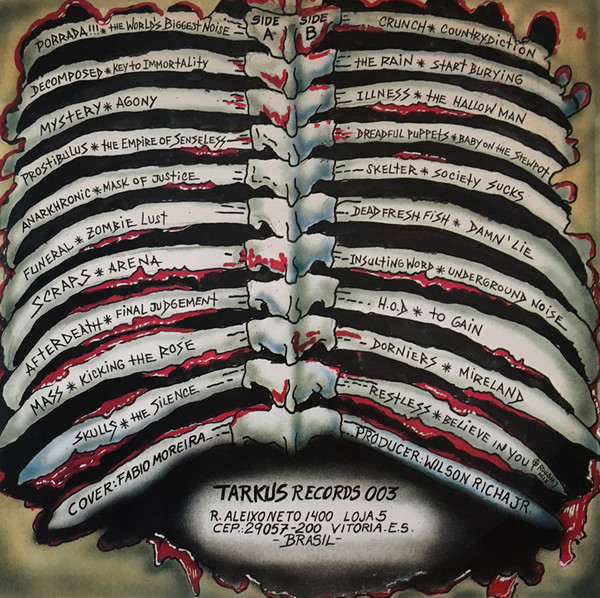 SIDE A
PORRADA!!! * THE WORLD'S BIGGEST NOISE
DECOMPOSED * KEY TO IMMORTALITY
MYSTERY * AGONY
PROSTIBULUS * THE EMPIRE OF SENSELESS
ANARKHRONIC * MASK OF JUSTICE
FUNERAL * ZOMBIE LUST
SCRAPS * ARENA
AFTERDEATH * FINAL JUDGEMENT
MASS * KICKING THE ROSE
SKULLS * THE SILENCE
COVER: FABIO MOREIRA
SIDE B
CRUNCH * COUNTRYDICTION
THE RAIN * START BURYING
ILLNESS * THE HALLOW MAN
DREADFUL PUPPETS * BABY ON THE STEWPOT
SKELTER * SOCIETY SUCKS
DEAD FRESH FISH * DAMN' LIE
INSULTING WORD * UNDERGROUND NOISE
H.O.D * TO GAIN
DORNIERS * MIRELAND
RESTLESS * BELIEVE IN YOU
PRODUCER: WILSON RICHA JR.
TARKUS RECORDS 003
R. ALEIXO NETO 1400 LOJA 5
CEP.: 29057-200 VITORIA. E.S.
-BRASIL-